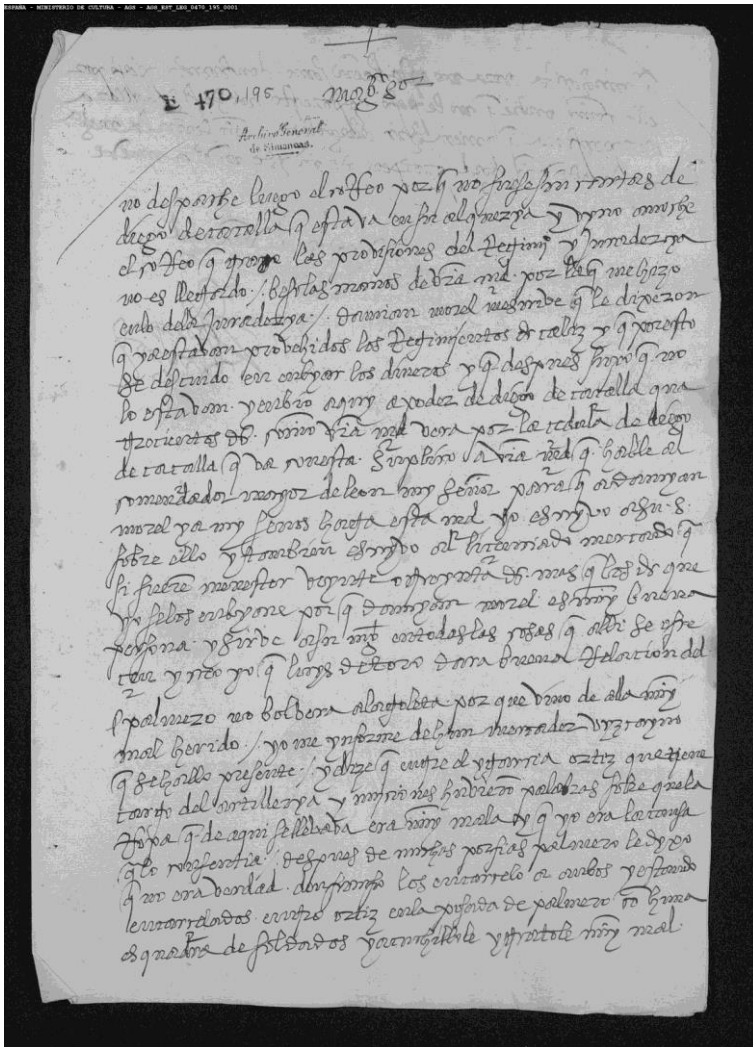 ESPAÑA - MINISTERIO DE CULTURA - AGS - AGS_EST_LEG_0470_195_0001
E 470, 195
Archivo General
de Simancas.
no despache luego el correo por q no fuese sin cartas de
diego de cacalla q estava en su alqueria y vyno anoche
el correo q trae las provisiones del Regimi y Juraderya
no es llegado /. beso las manos de vra md. por la q me hizo
en lo dela Juraderya /. damian morel me escrive q le dixeron
q ya estavan provehidos los Regimientos de caliz y q por esto
se descuido en enbyar los dineros y q despues supo q no
lo estavan. y enbio aqui a poder de diego de cacalla qua
trocientos ds. como vra md vera por la cedula de diego
de cacalla q va con esta. suplico a vra md q. hable al
comendador mayor de leon my señor para q a damyan
morel y a my senos haga esta md yo escrivo a su. s.
sobre ello y tambien escrivo al licenciado mercado q
si fuere menester veynte o treynta ds. mas q los de que
yo selos enbyare por q damyan morel es muy buena
persona y sirve a su mgt en todas las cosas q alli se ofre
cen y creo yo q luys de toro dara buena Relacion del
palmero no bolvera ala goleta por que vino de alla muy
mal herido /. yo me ynforme de hun mercader vyzcayno
q se hallo presente /. y dize q entre el y garcia ortiz que tiene
cargo del artillerya y municiones hubiero palabras sobre que la
Ropa q de aqui se llebava era muy mala y q yo era la causa
q lo consentia. despues de muchas porfias palmero le dyxo
q no era verdad. don fran los encarcelo a anbos y estando
encarcelados entro ortiz en la posada de palmero co huna
esquadra de soldados y acuchillole y tratole muy mal.